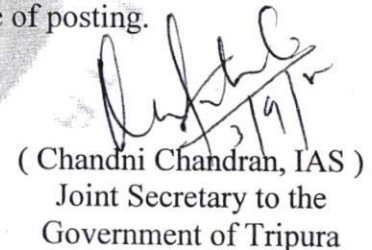 e of posting.
3/9/
( Chandni Chandran, IAS )
Joint Secretary to the
Government of Tripura